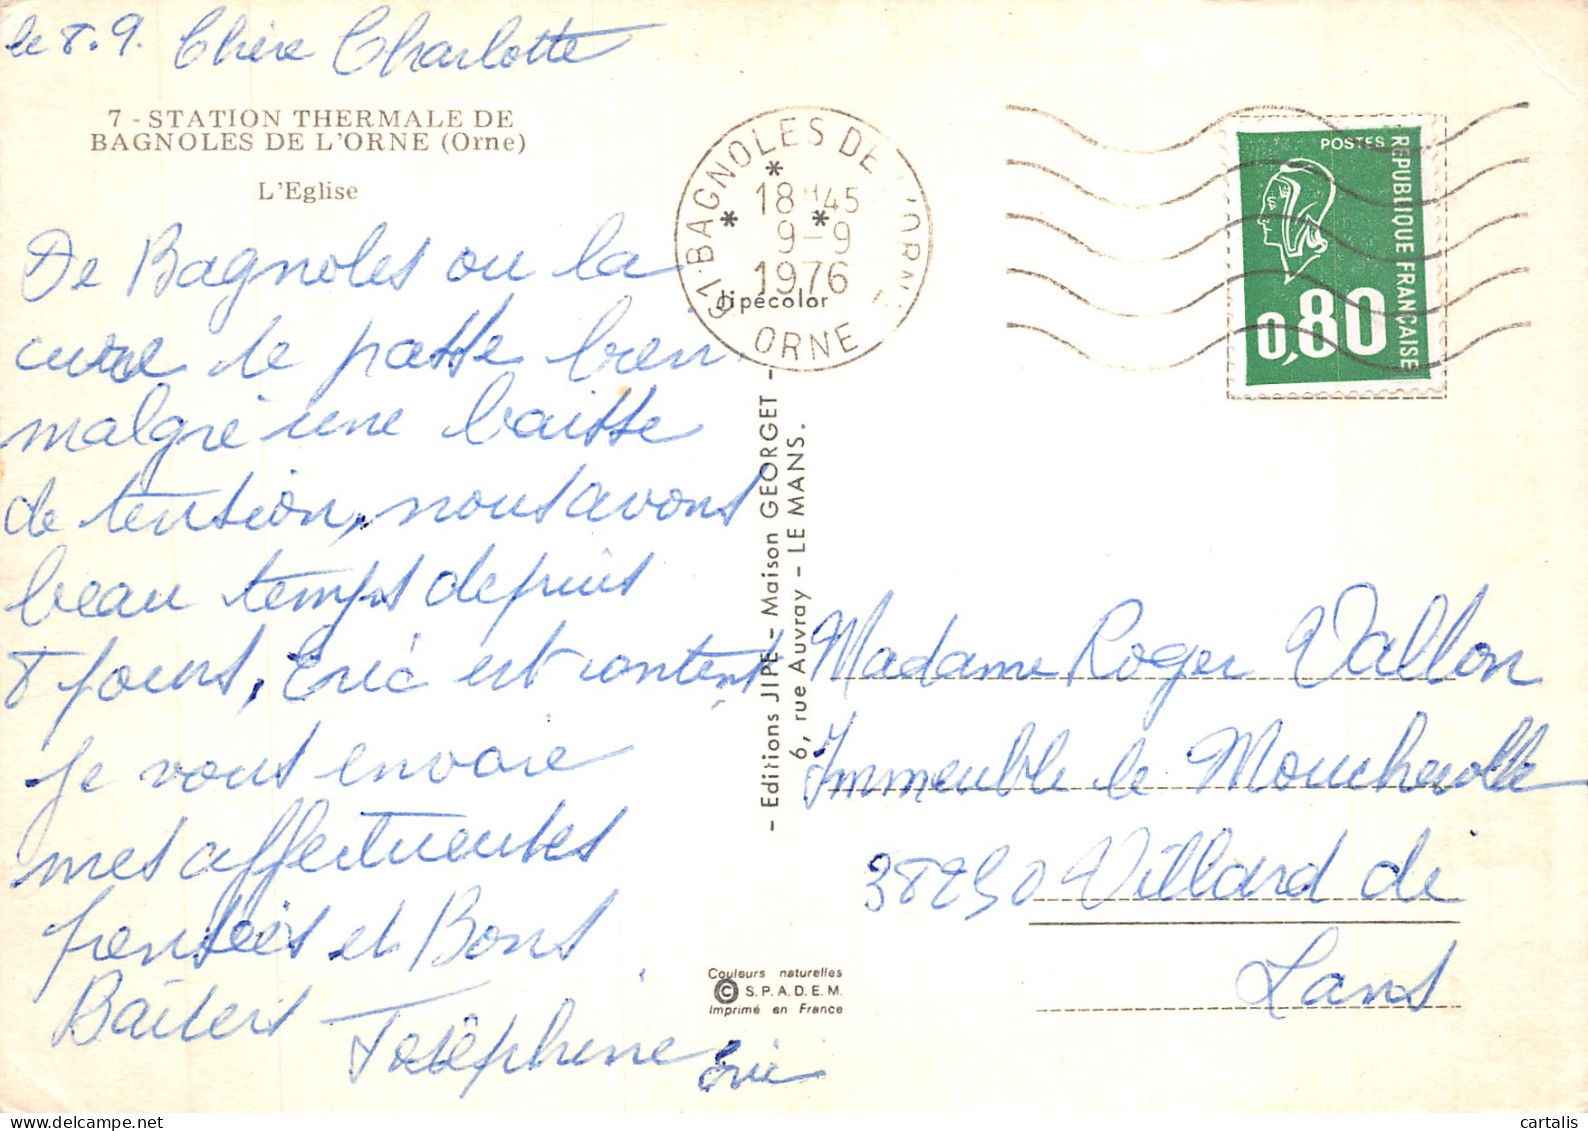 le 8.9. Chère Charlotte
7 - STATION THERMALE DE
BAGNOLES DE L'ORNE (Orne)
L'Eglise
De Bagnoles ou la
cure se passe bien
malgré une baisse
de tension, nous avons
beau temps depuis
8 jours, Eric est content
Je vous envoie
mes affectueuses
pensées et Bons
Baisers Josèphine
Eric
61-BAGNOLES DE L'ORNE
18H45
9-9
1976
ORNE
jipécolor
- Editions JIPE - Maison GEORGET -
6, rue Auvray - LE MANS.
POSTES
REPUBLIQUE FRANÇAISE
0,80
Madame Roger Vallon
Immeuble le Moucherolle
38250 Villard de
Lans
Couleurs naturelles
© S.P.A.D.E.M.
Imprimé en France
cartalis